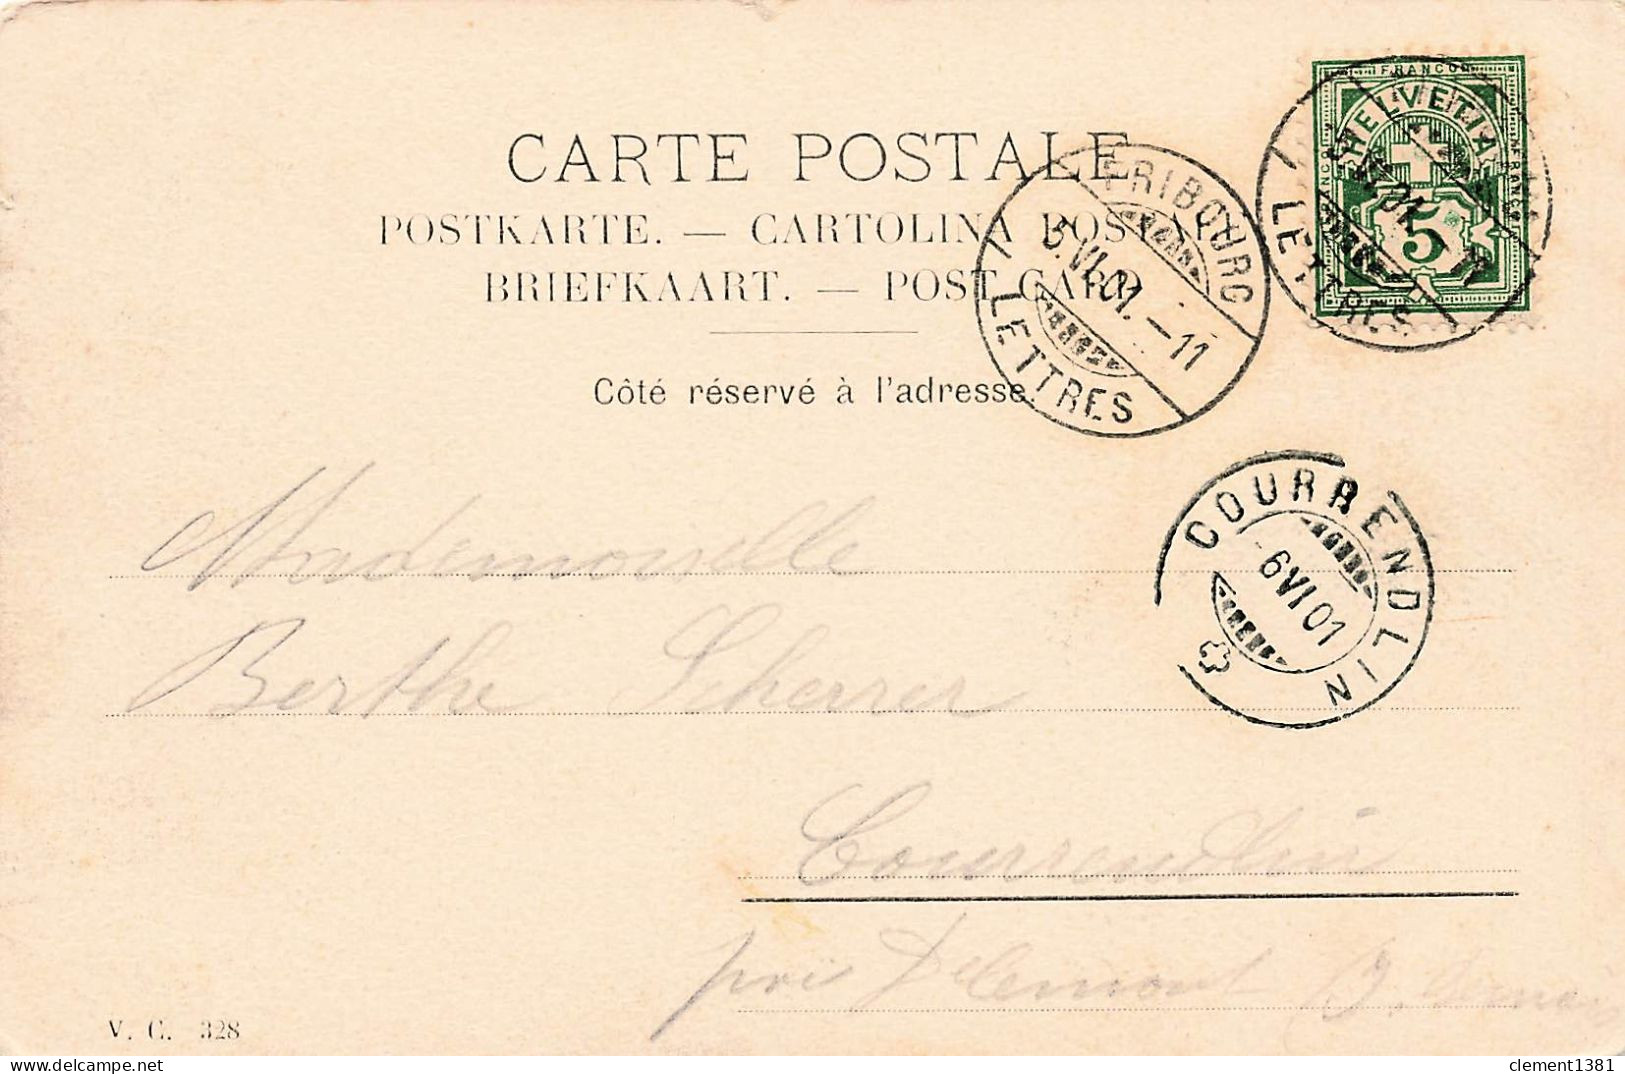 CARTE POSTALE
POSTKARTE. — CARTOLINA POSTALE
BRIEFKAART. — POST CARD
Côté réservé à l'adresse.
FRANCO
HELVETIA
FRANCO
FRANCO
5
5.VI.01.–11
LETTRES
FRIBOURG
5.VI.01.–11
LETTRES
COURRENDLIN
6 VI 01
Mademoiselle
Berthe Scherrer
Courrendlin
près Delémont
V. C. 328
clement1381